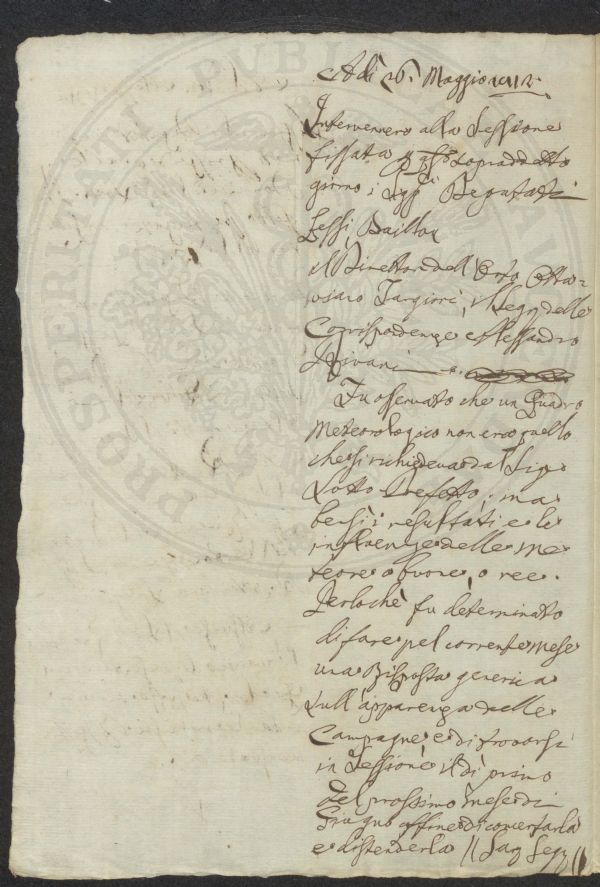 Adì 26. Maggio 1812
Intervennero alla Sessione
fissata p. qsto sopraddetto
giorno i Sigg.i Deputati
Lessi, Baillou
il Direttore dell'Orto Otta=
viano Targioni, il Segr. delle
Corrispondenze e Alessandro
Rivani
Fu osservato che un Quadro
Meteorologico non era quello
che si richiedeva dal Sig.
Sotto Prefetto; ma
bensì i resultati e le
influenze delle me
teore o buone, o ree.
Perlochè fu determinato
di fare pel corrente mese
una Risposta generica
sull'apparenza delle
Campagne e di trovarsi
in Sessione il dì primo
del prossimo mese di
Giugno affine di concertarla
e distenderla // Segr
PROSPERITATI PUBLICAE AU